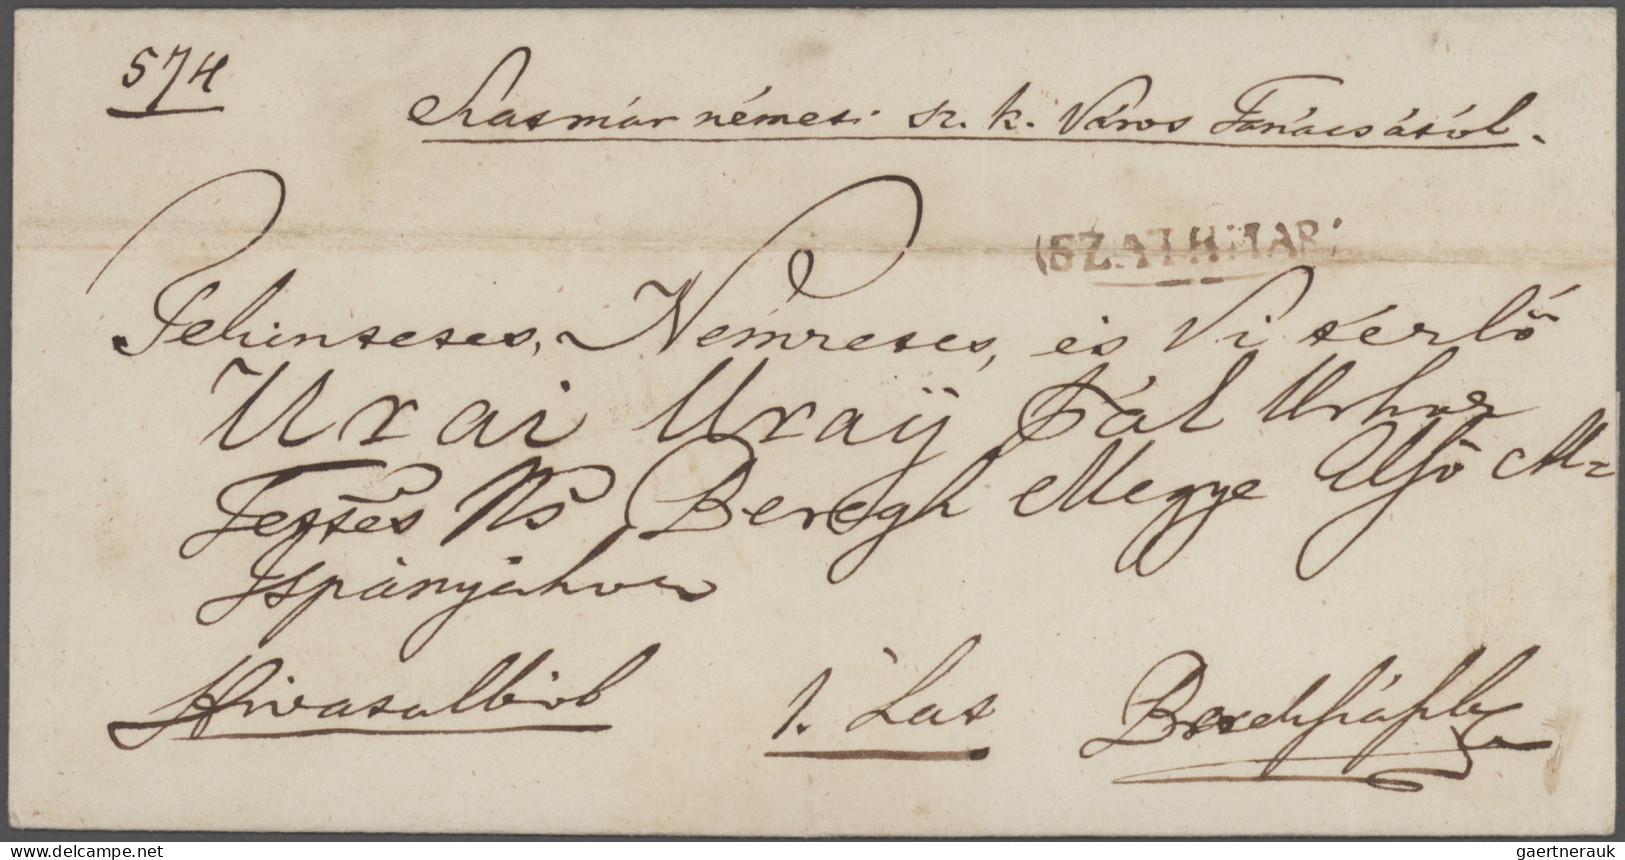 574
Szatmár németi sz. k. Város Tanácsától.
(SZATHMAR)
Tekintetes, Nemzetes, és Vitézlő
Urai Uraÿ Pál Urhoz
Tettes Ns Beregh Megye Első Al
Ispányjához
Hivatalból
1. Lat
Bereghszászba
delcampe.net
gaertnerauk